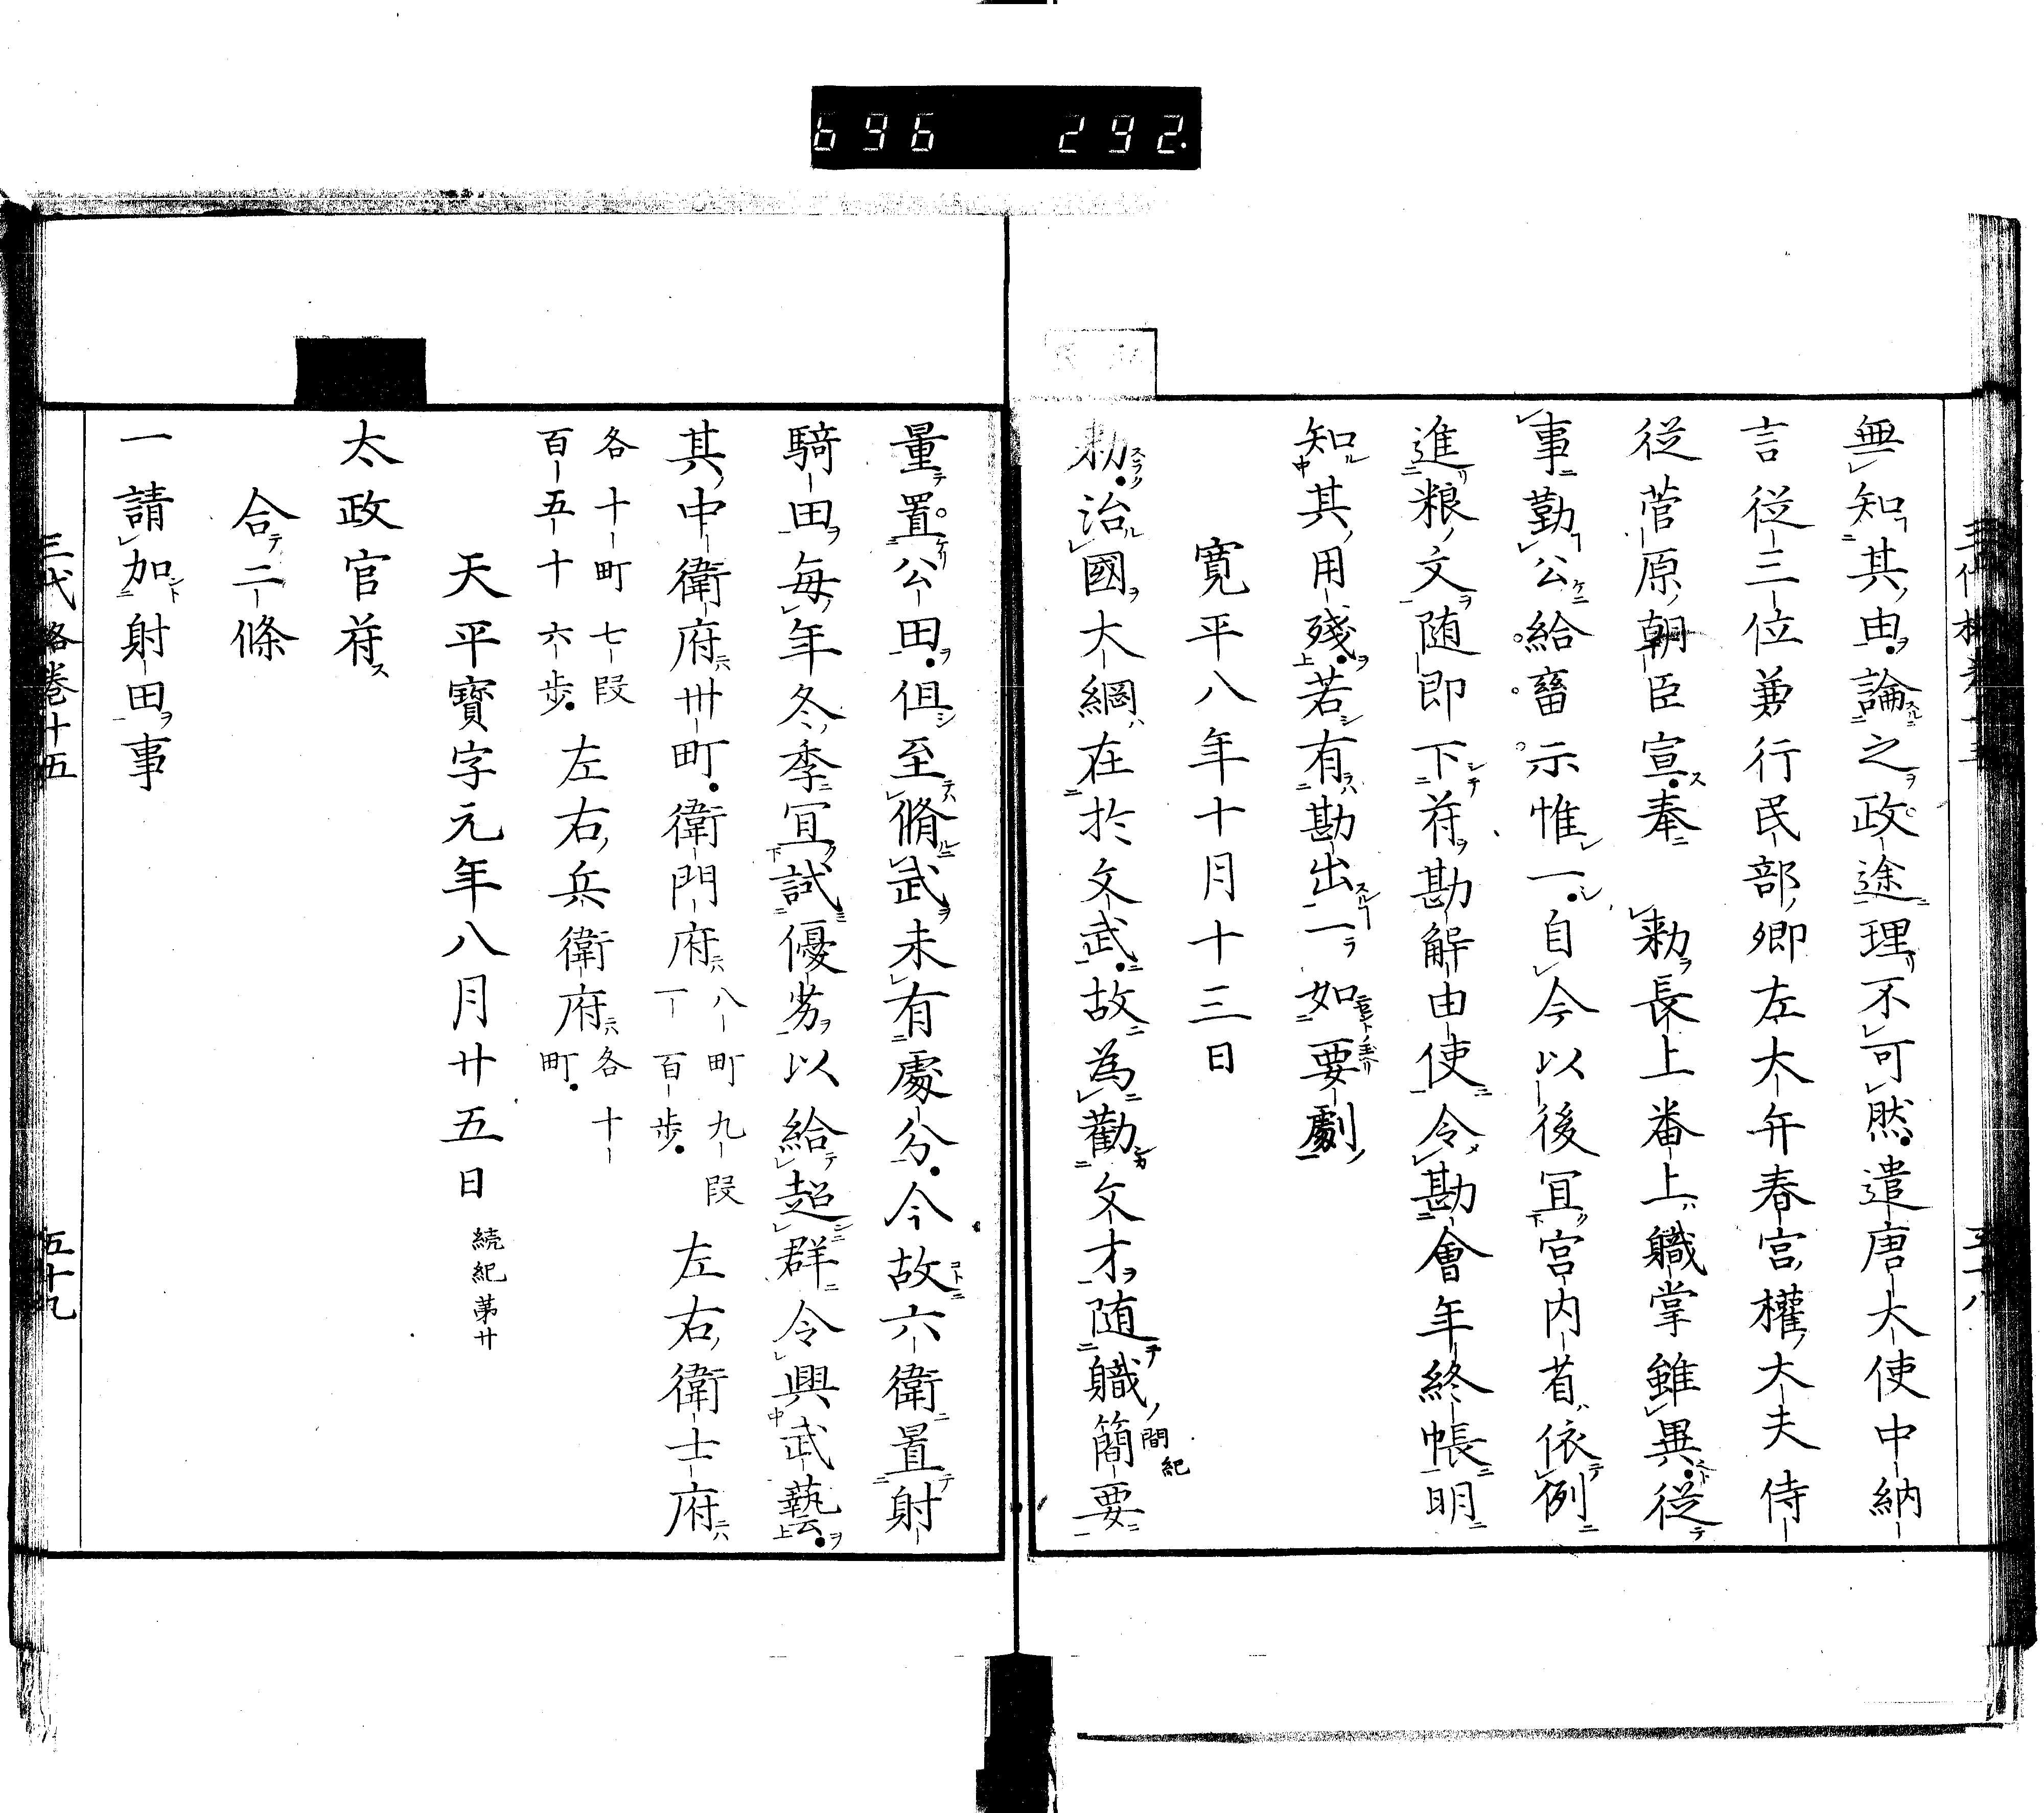 696 292.
無知其由論之政途理不可然遣唐大使中納
言從三位兼行民部卿左大弁春宮權大夫侍
從菅原朝臣宣奉 勅長上番上職掌雖異從
事勤公給畜示惟一自今以後宜宮内省依例
進粮文随即下符勘解由使令勘會年終帳明
知其用殘若有勘出一如要劇
寛平八年十月十三日
勅治國大綱在於文武故為勸文才随職簡要
間紀
量置公田但至脩武未有處分今故六衛置射
騎田毎年冬季宜試優劣以給超群令興武藝
其中衛府卅町衛門府八町九段一百歩左右衛士府
各十町七段百五十六歩左右兵衛府各十町
天平寳字元年八月廿五日 続紀第廿
太政官符
合二條
一請加射田事
三代格卷十五 五十九